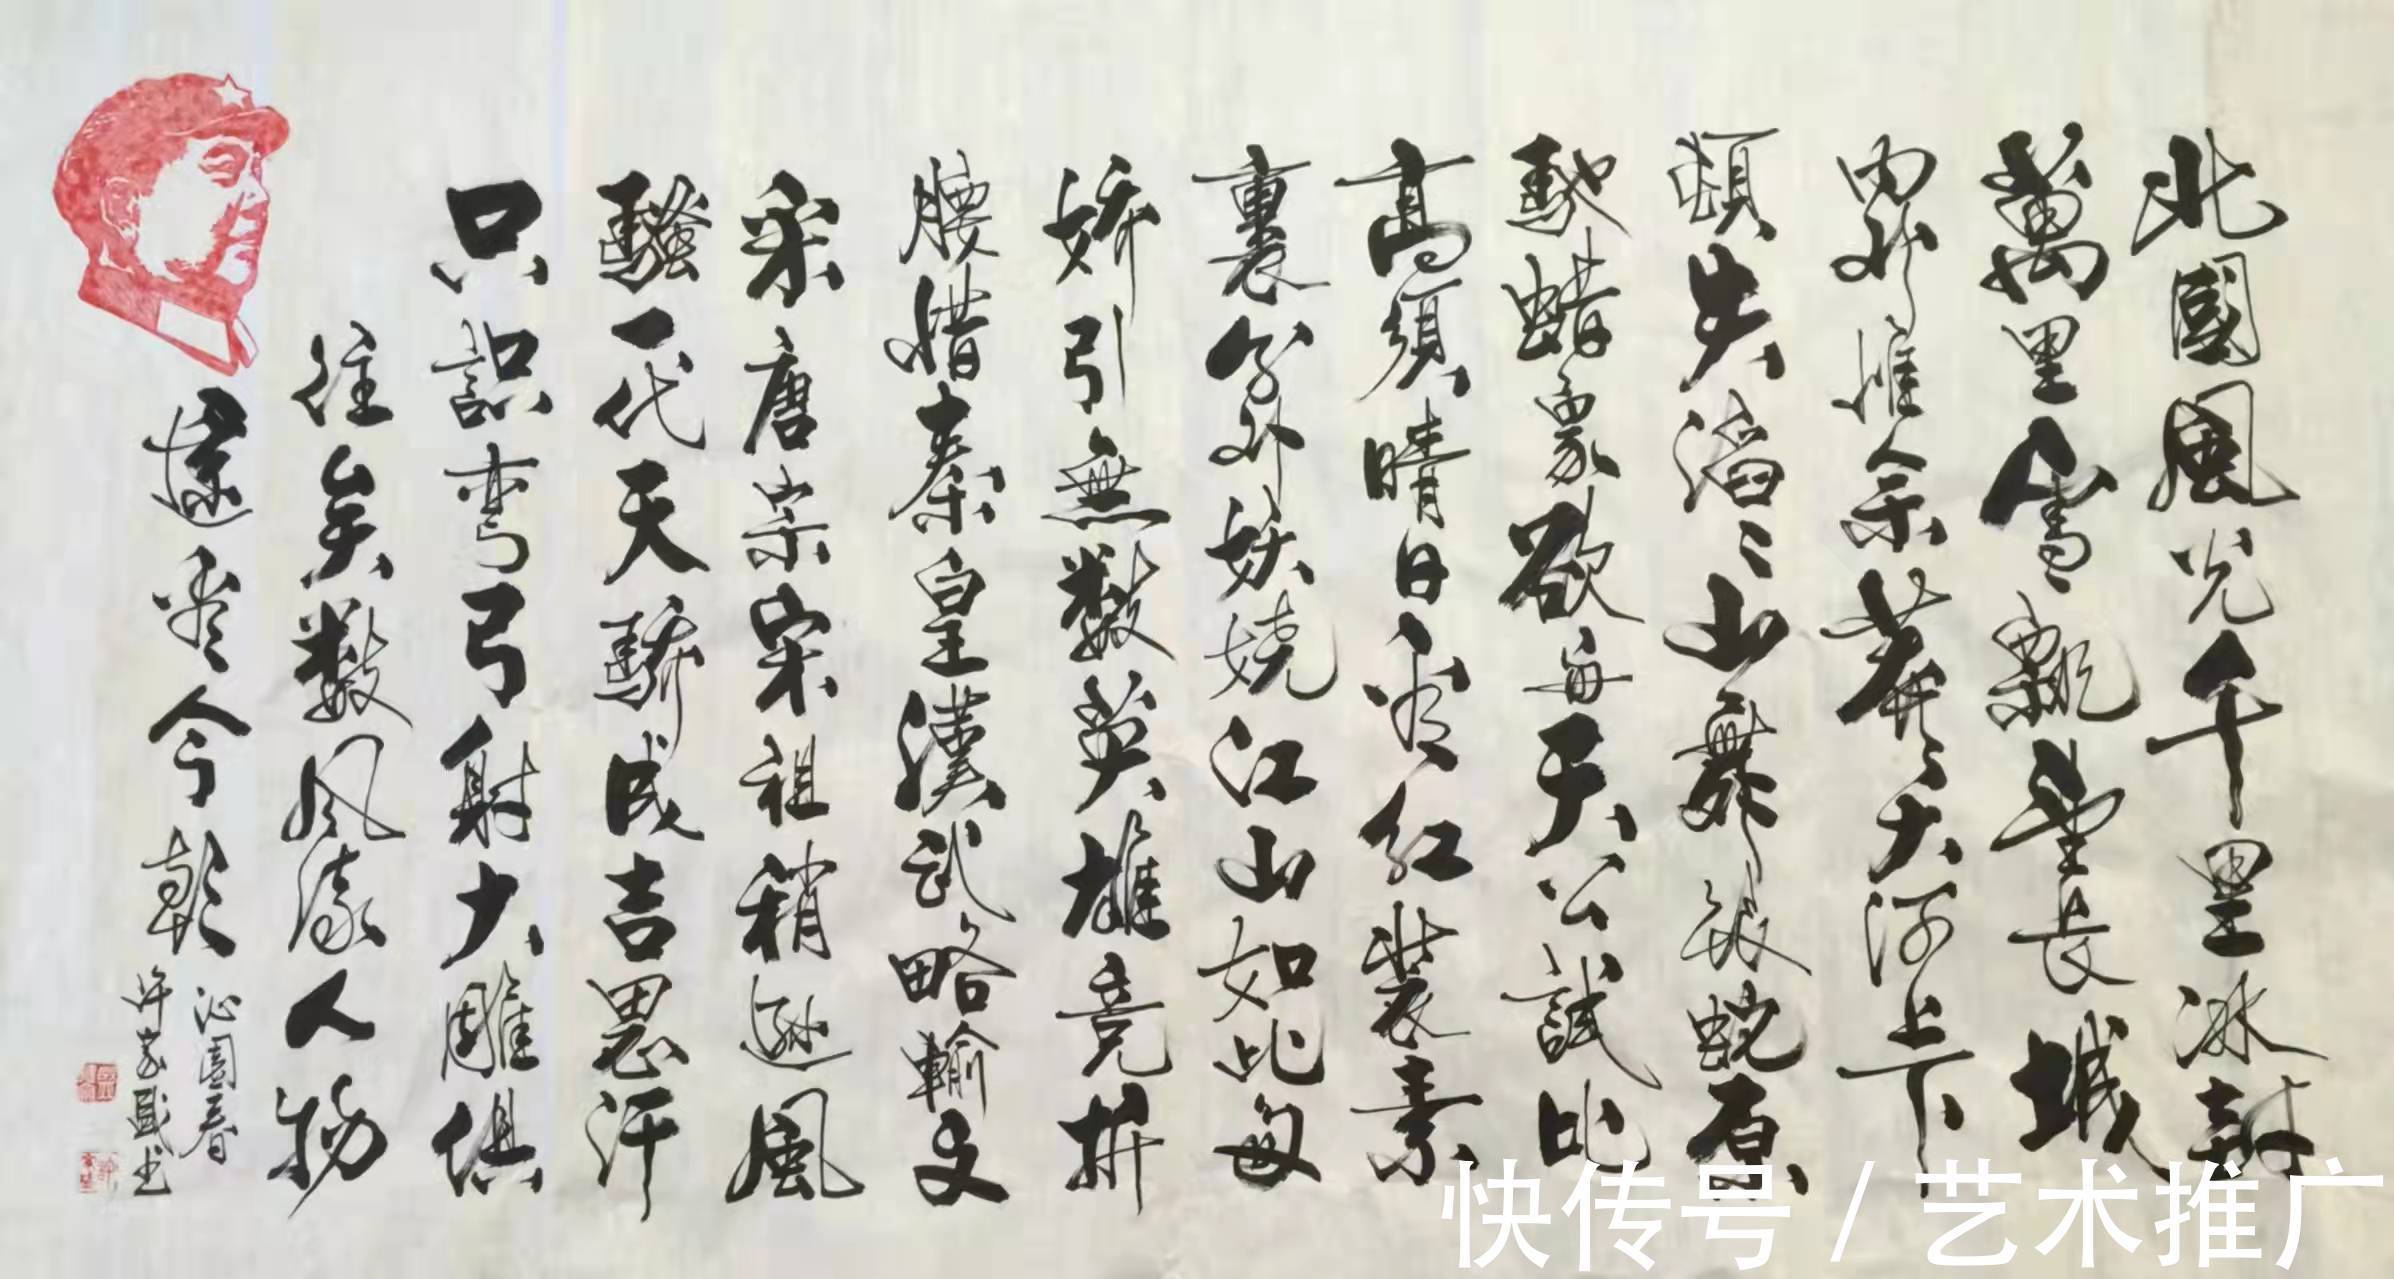 北國風光千里冰封
萬里雪飄望長城
内外惟余莽〻大河上下
頓失滔〻山舞銀蛇原
馳蜡象欲与天公試比
高須晴日看红装素
裹分外妖嬈江山如此多
嬌引無数英雄竞折
腰惜秦皇漢武略輸文
采唐宗宋祖稍逊風
騷一代天驕成吉思汗
只識弯弓射大雕俱
往矣数风流人物
還看今朝
沁園春
許家书
快传号 / 艺术推广